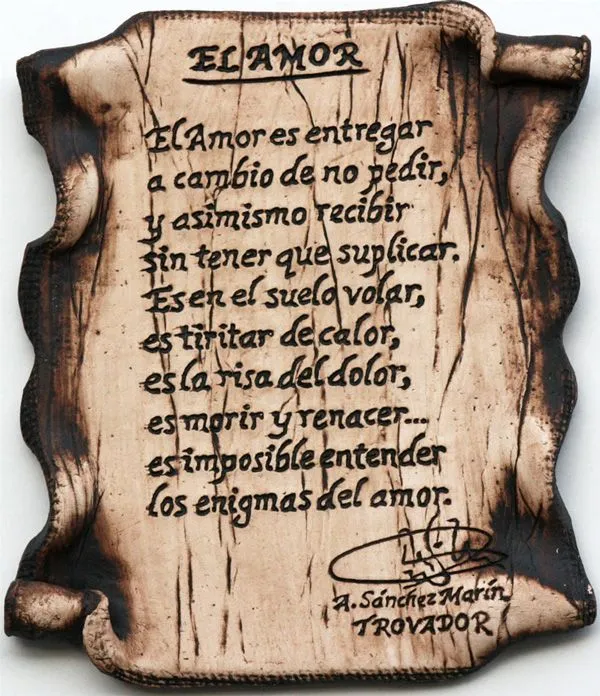 EL AMOR
El Amor es entregar
a cambio de no pedir,
y asimismo recibir
sin tener que suplicar.
Es en el suelo volar,
es tiritar de calor,
es la risa del dolor,
es morir y renacer...
es imposible entender
los enigmas del amor.
A. Sánchez Marín
TROVADOR